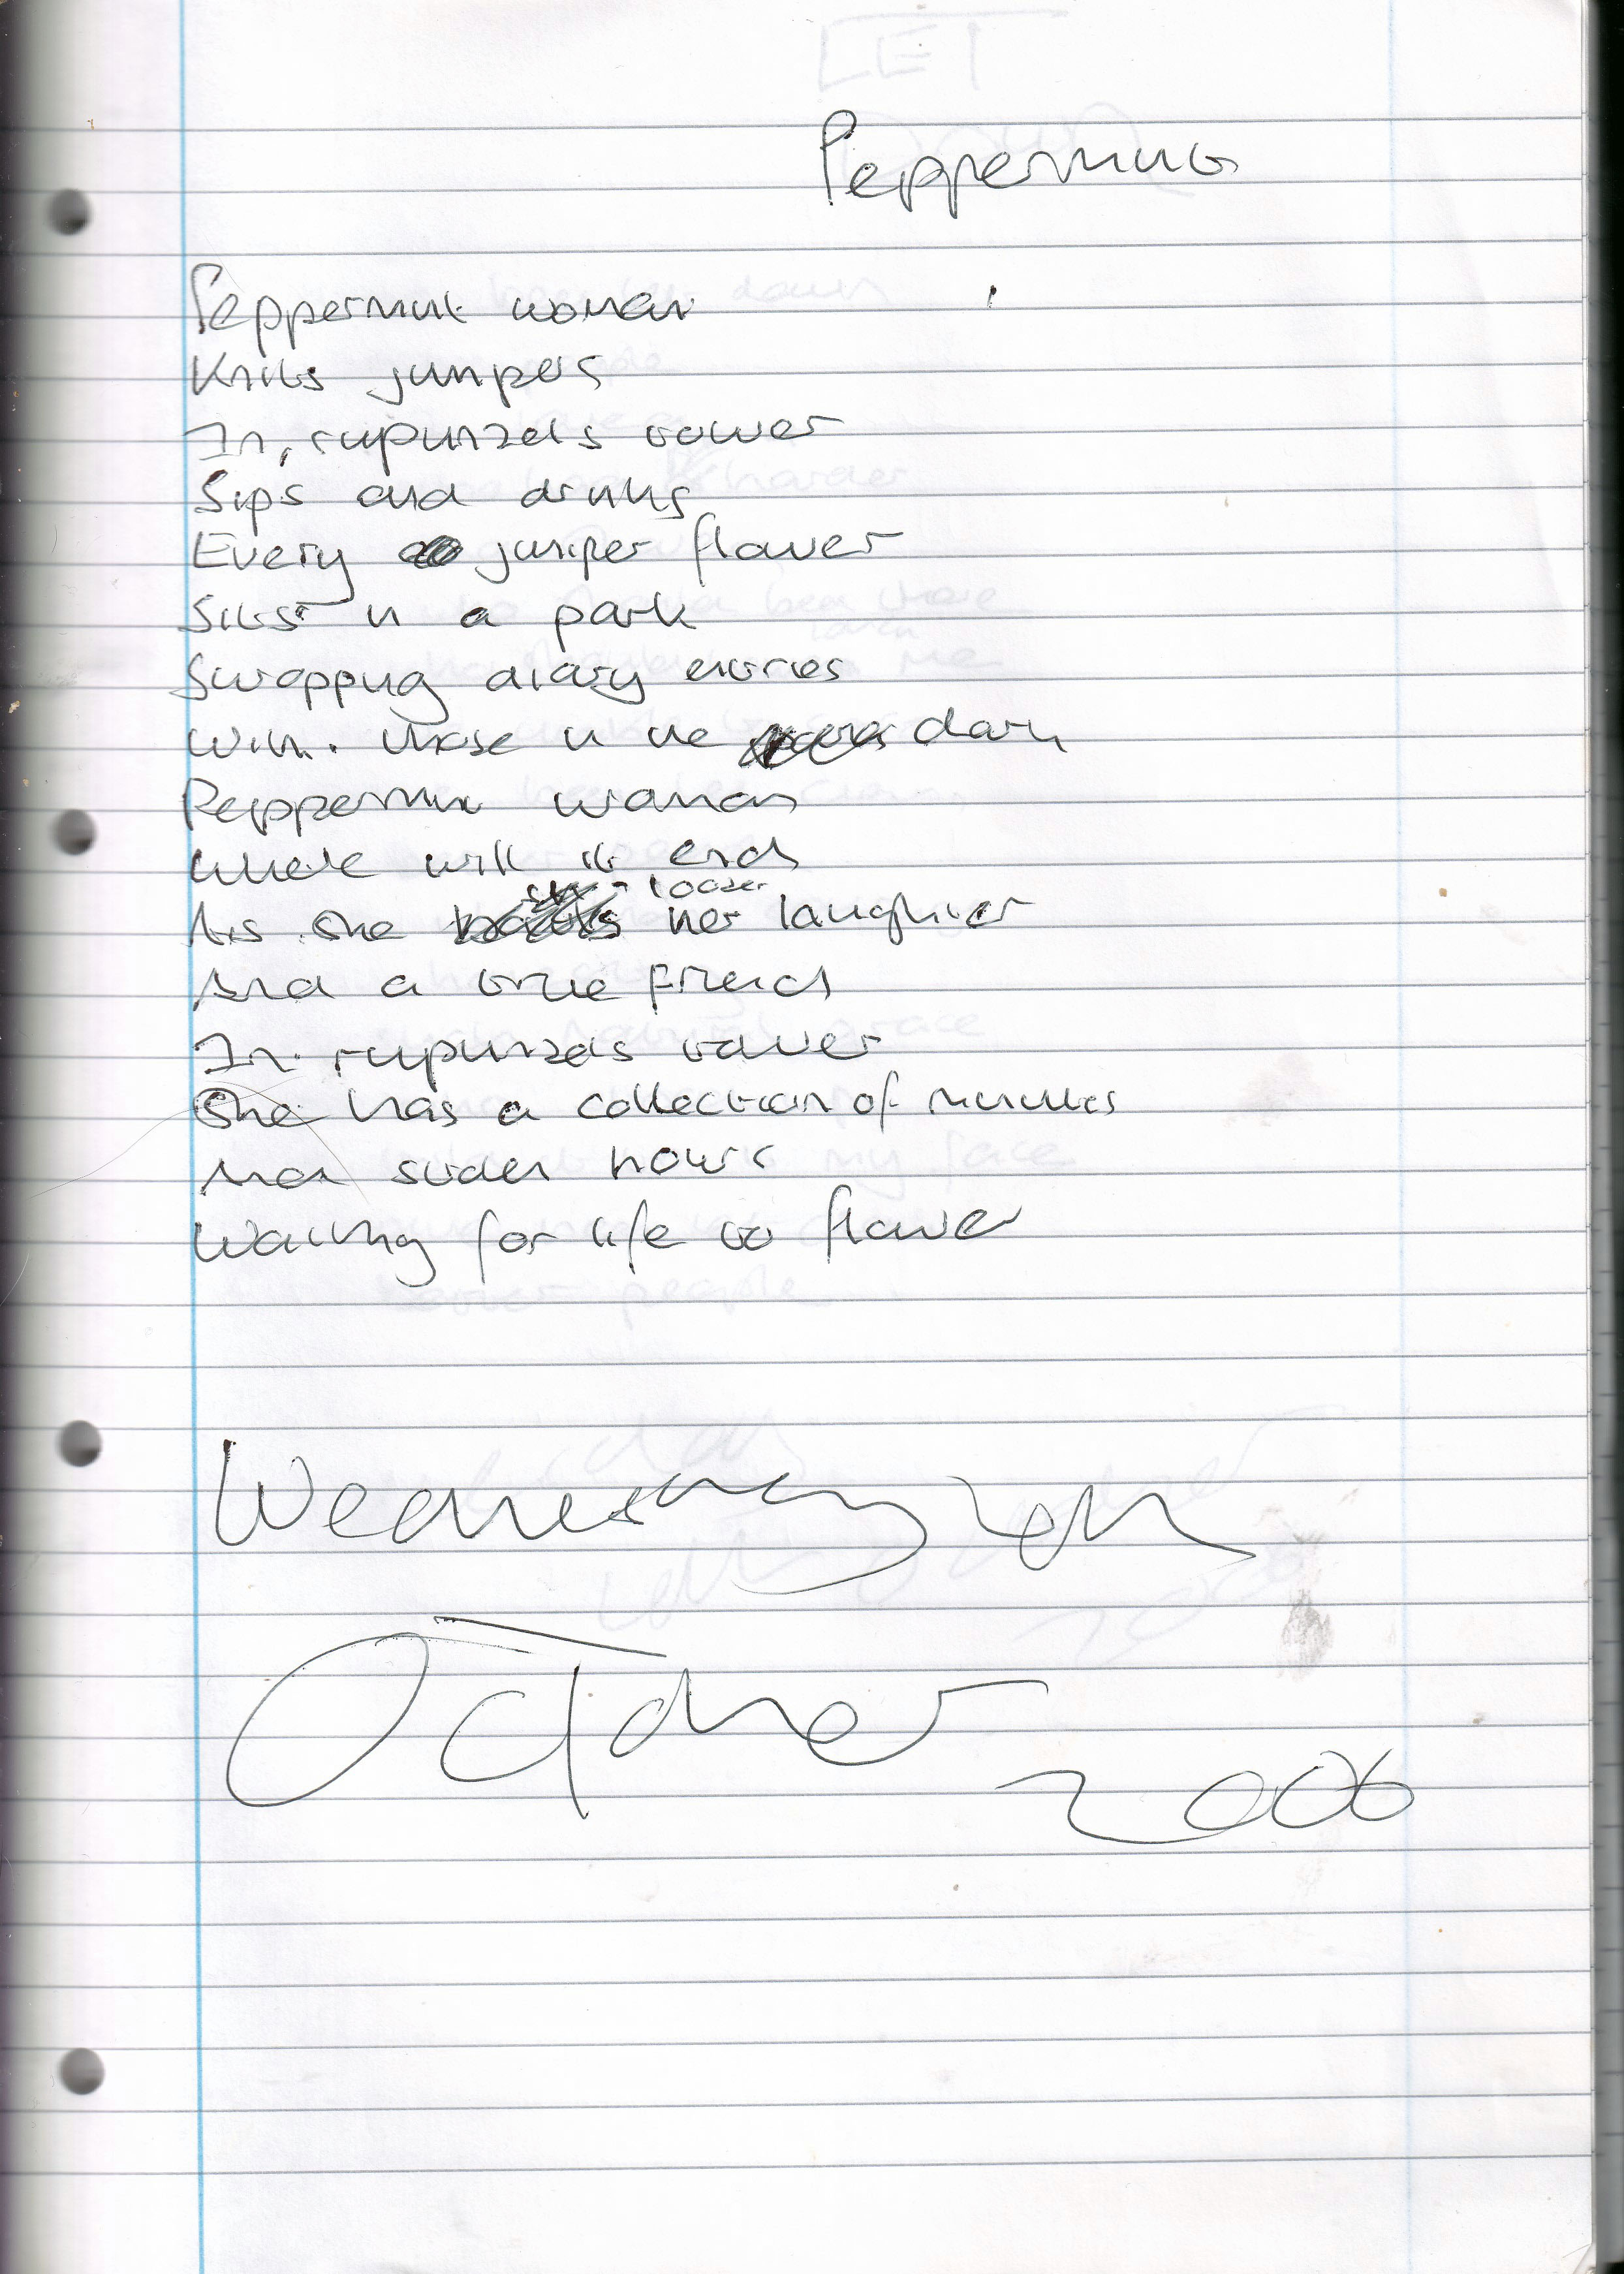 Peppermint
Peppermint woman
Knits jumpers
In rupunzels tower
Sips and drinks
Every juniper flower
Sits in a park
Swopping diary entries
With those in the dark
Peppermint woman
Where will it end
looser
As she her laughter
And a true friend
In rupunzels tower
She has a collection of minutes
And stolen hours
Waiting for life to flower
Wednesday
October
2006